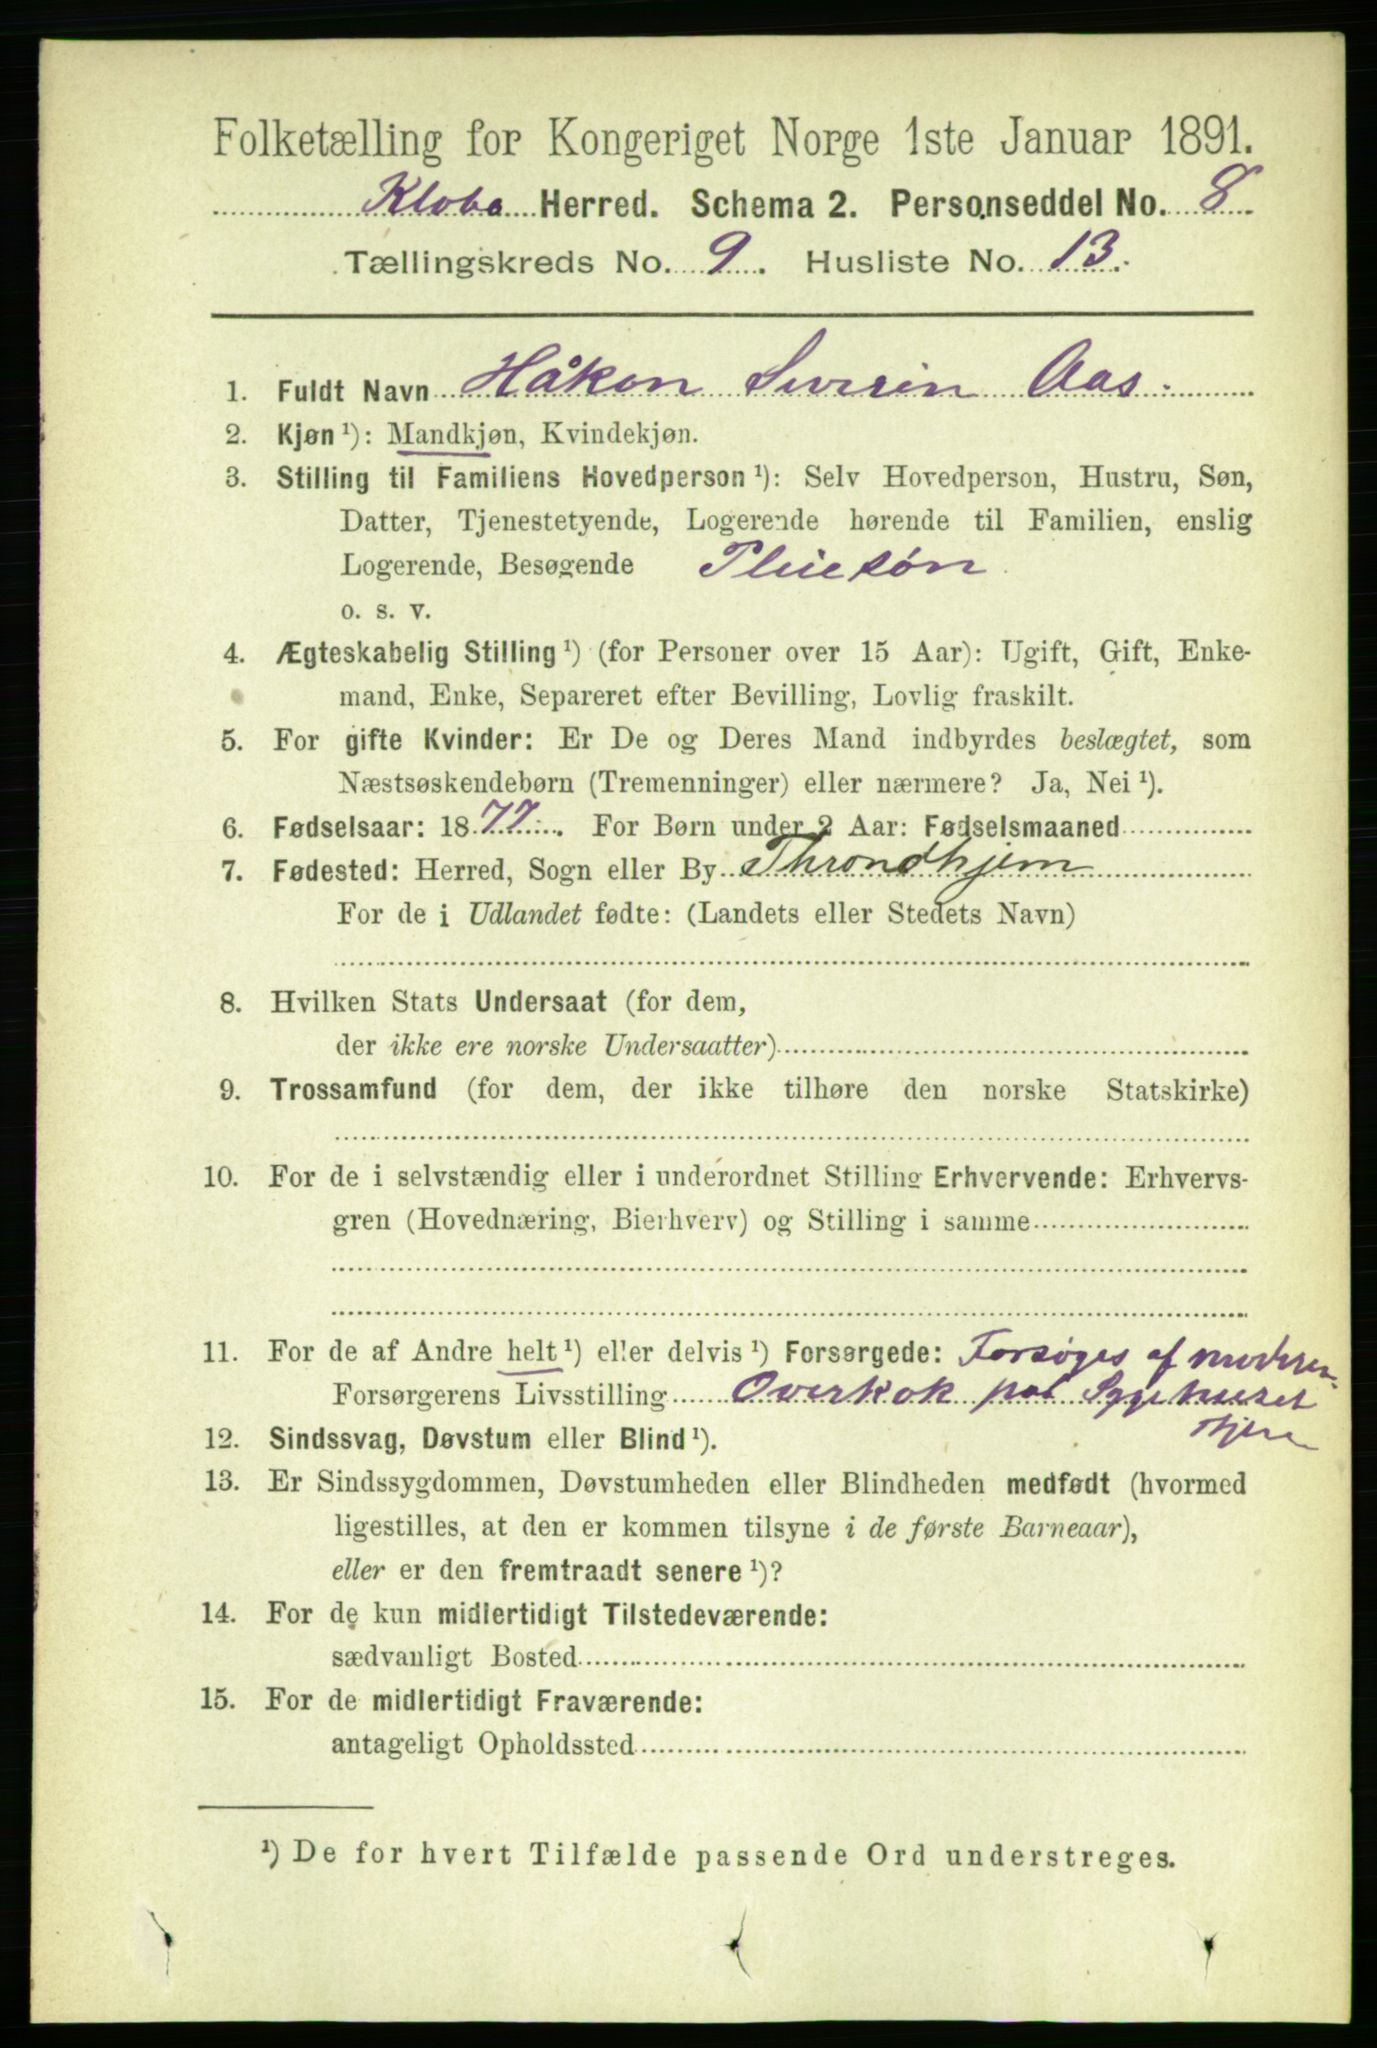 Folketælling for Kongeriget Norge 1ste Januar 1891.
Klæbo Herred. Schema 2. Personseddel No. 8
Tællingskreds No. 9. Husliste No. 13.
1. Fuldt Navn Håkon Sverin Aas.
2. Kjøn ¹): Mandkjøn, Kvindekjøn.
3. Stilling til Familiens Hovedperson ¹): Selv Hovedperson, Hustru, Søn,
Datter, Tjenestetyende, Logerende hørende til Familien, enslig
Logerende, Besøgende Pleiesøn
o. s. v.
4. Ægteskabelig Stilling ¹) (for Personer over 15 Aar): Ugift, Gift, Enke-
mand, Enke, Separeret efter Bevilling, Lovlig fraskilt.
5. For gifte Kvinder: Er De og Deres Mand indbyrdes beslægtet, som
Næstsøskendebørn (Tremenninger) eller nærmere? Ja, Nei ¹).
6. Fødselsaar: 1877. For Børn under 2 Aar: Fødselsmaaned
7. Fødested: Herred, Sogn eller By Throndhjem
For de i Udlandet fødte: (Landets eller Stedets Navn)
8. Hvilken Stats Undersaat (for dem,
der ikke ere norske Undersaatter)
9. Trossamfund (for dem, der ikke tilhøre den norske Statskirke)
10. For de i selvstændig eller i underordnet Stilling Erhvervende: Erhvervs-
gren (Hovednæring, Bierhverv) og Stilling i samme
11. For de af Andre helt ¹) eller delvis ¹) Forsørgede: Forsøges af moderen
Forsørgerens Livsstilling Overkok på Sygehuset
Thjem
12. Sindssvag, Døvstum eller Blind ¹).
13. Er Sindssygdommen, Døvstumheden eller Blindheden medfødt (hvormed
ligestilles, at den er kommen tilsyne i de første Barneaar),
eller er den fremtraadt senere ¹)?
14. For de kun midlertidigt Tilstedeværende:
sædvanligt Bosted
15. For de midlertidigt Fraværende:
antageligt Opholdssted
¹) De for hvert Tilfælde passende Ord understreges.